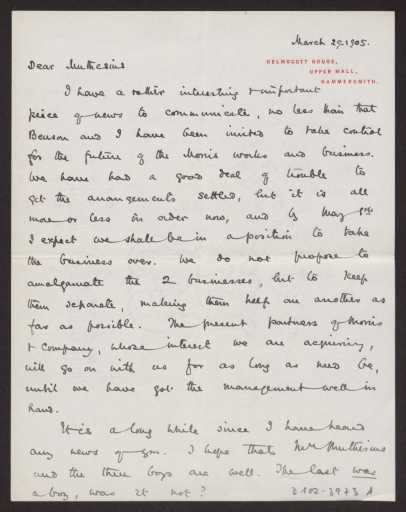 March 29, 1905.
KELMSCOTT HOUSE,
UPPER MALL,
HAMMERSMITH.
Dear Muthesius
I have a rather interesting & important
piece of news to communicate, no less than that
Benson and I have been invited to take control
for the future of the Morris works and business.
We have had a good deal of trouble to
get the arrangements settled, but it is all
more or less in order now, and by May 1st
I expect we shall be in a position to take
the business over. We do not propose to
amalgamate the 2 businesses, but to keep
them separate, making them help one another as
far as possible. The present partners of Morris
& Company, whose interest we are acquiring,
will go on with us for as long as need be,
until we have got the management well in
hand.
It is a long while since I have heard
any news of you. I hope that Mrs Muthesius
and the three boys are well. The last was
a boy, was it not?
D 102-3973 A